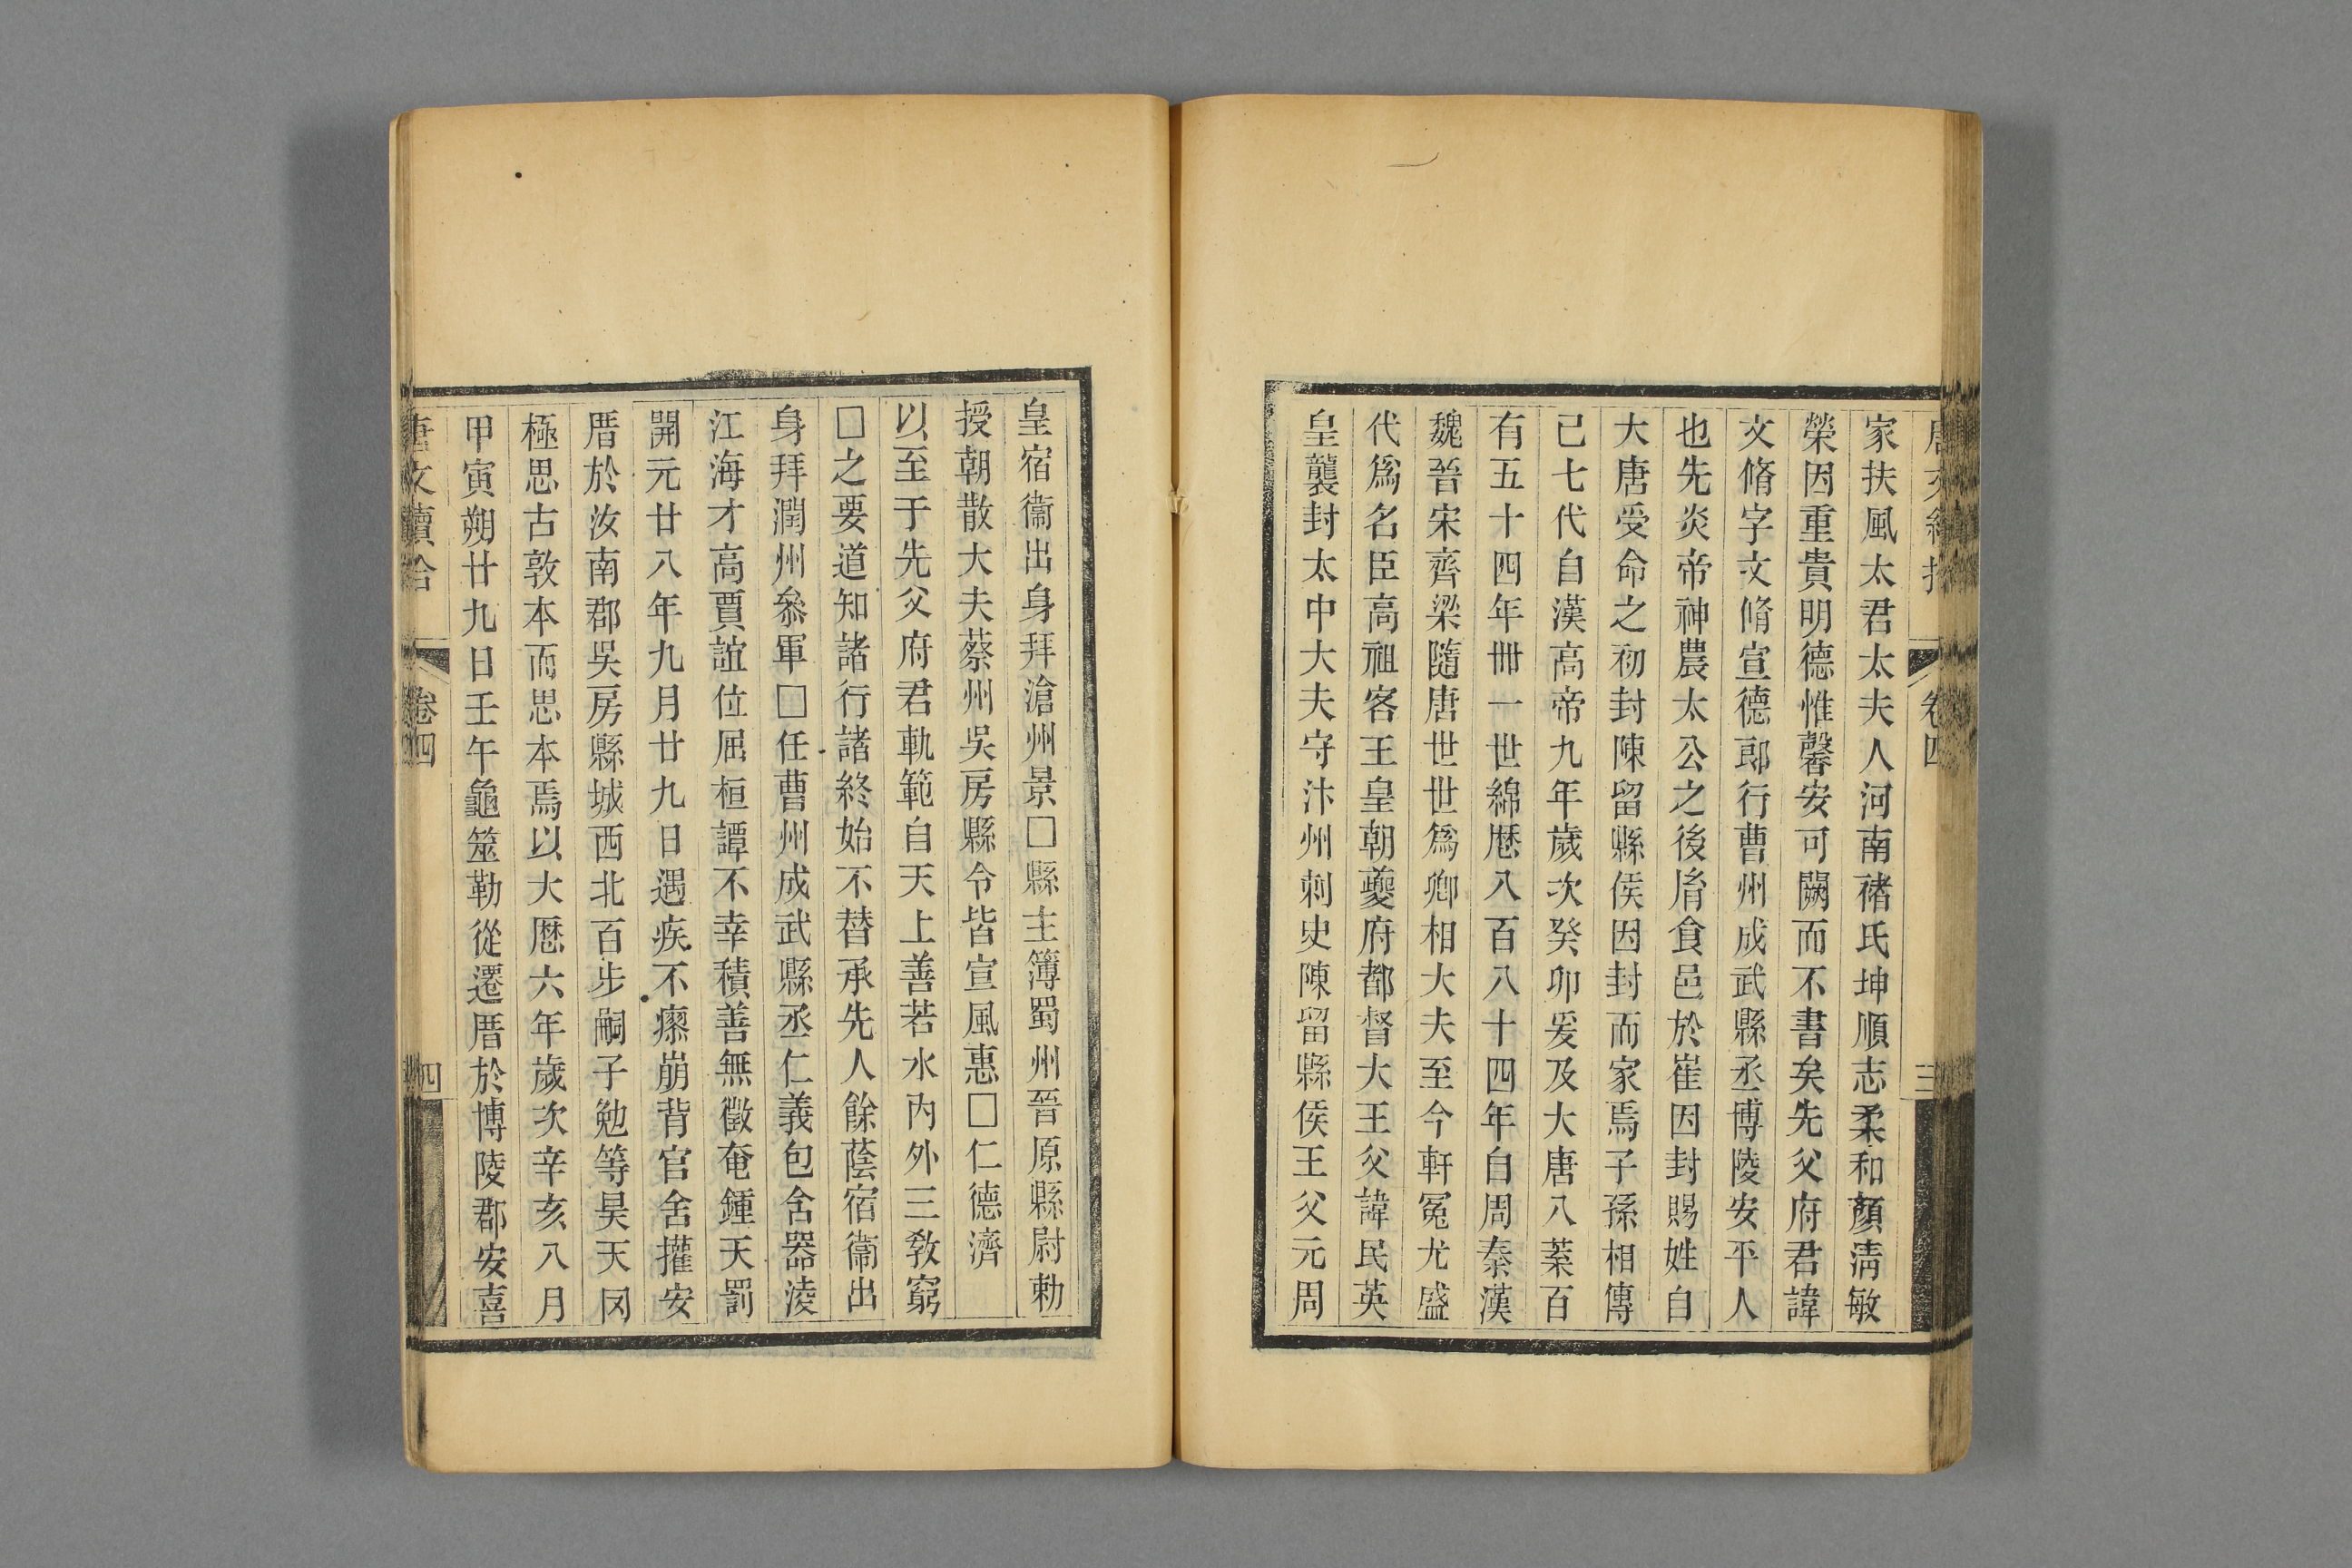 家扶風太君太夫人河南禇氏坤順志柔和顏淸敏
榮因重貴明德惟馨安可闕而不書矣先父府君諱
文脩字文脩宣德郎行曹州成武縣丞博陵安平人
也先炎帝神農太公之後胥食邑於崔因封賜姓自
大唐受命之初封陳留縣侯因封而家焉子孫相傳
己七代自漢高帝九年歲次癸卯爰及大唐八葉百
有五十四年卌一世綿厯八百八十四年自周秦漢
魏晉宋齊梁隨唐世世爲卿相大夫至今軒冕尤盛
代爲名臣高祖客王皇朝夔府都督大王父諱民英
皇襲封太中大夫守汴州刺史陳留縣侯王父元周
皇宿衞出身拜滄州景□縣主簿蜀州晉原縣尉勅
授朝散大夫蔡州吳房縣令皆宣風惠□仁德濟
以至于先父府君軌範自天上善若水內外三敎窮
□之要道知諸行諸終始不替承先人餘蔭宿衞出
身拜潤州叅軍□任曹州成武縣丞仁義包舍器淩
江海才高賈誼位屈桓譚不幸積善無徵奄鍾天罰
開元廿八年九月廿九日遇疾不瘳崩背官舍攉安
厝於汝南郡吳房縣城西北百步嗣子勉等昊天罔
極思古敦本而思本焉以大厯六年歲次辛亥八月
甲寅朔廿九日壬午龜筮勒從遷厝於博陵郡安喜
唐文續拾 卷四 四